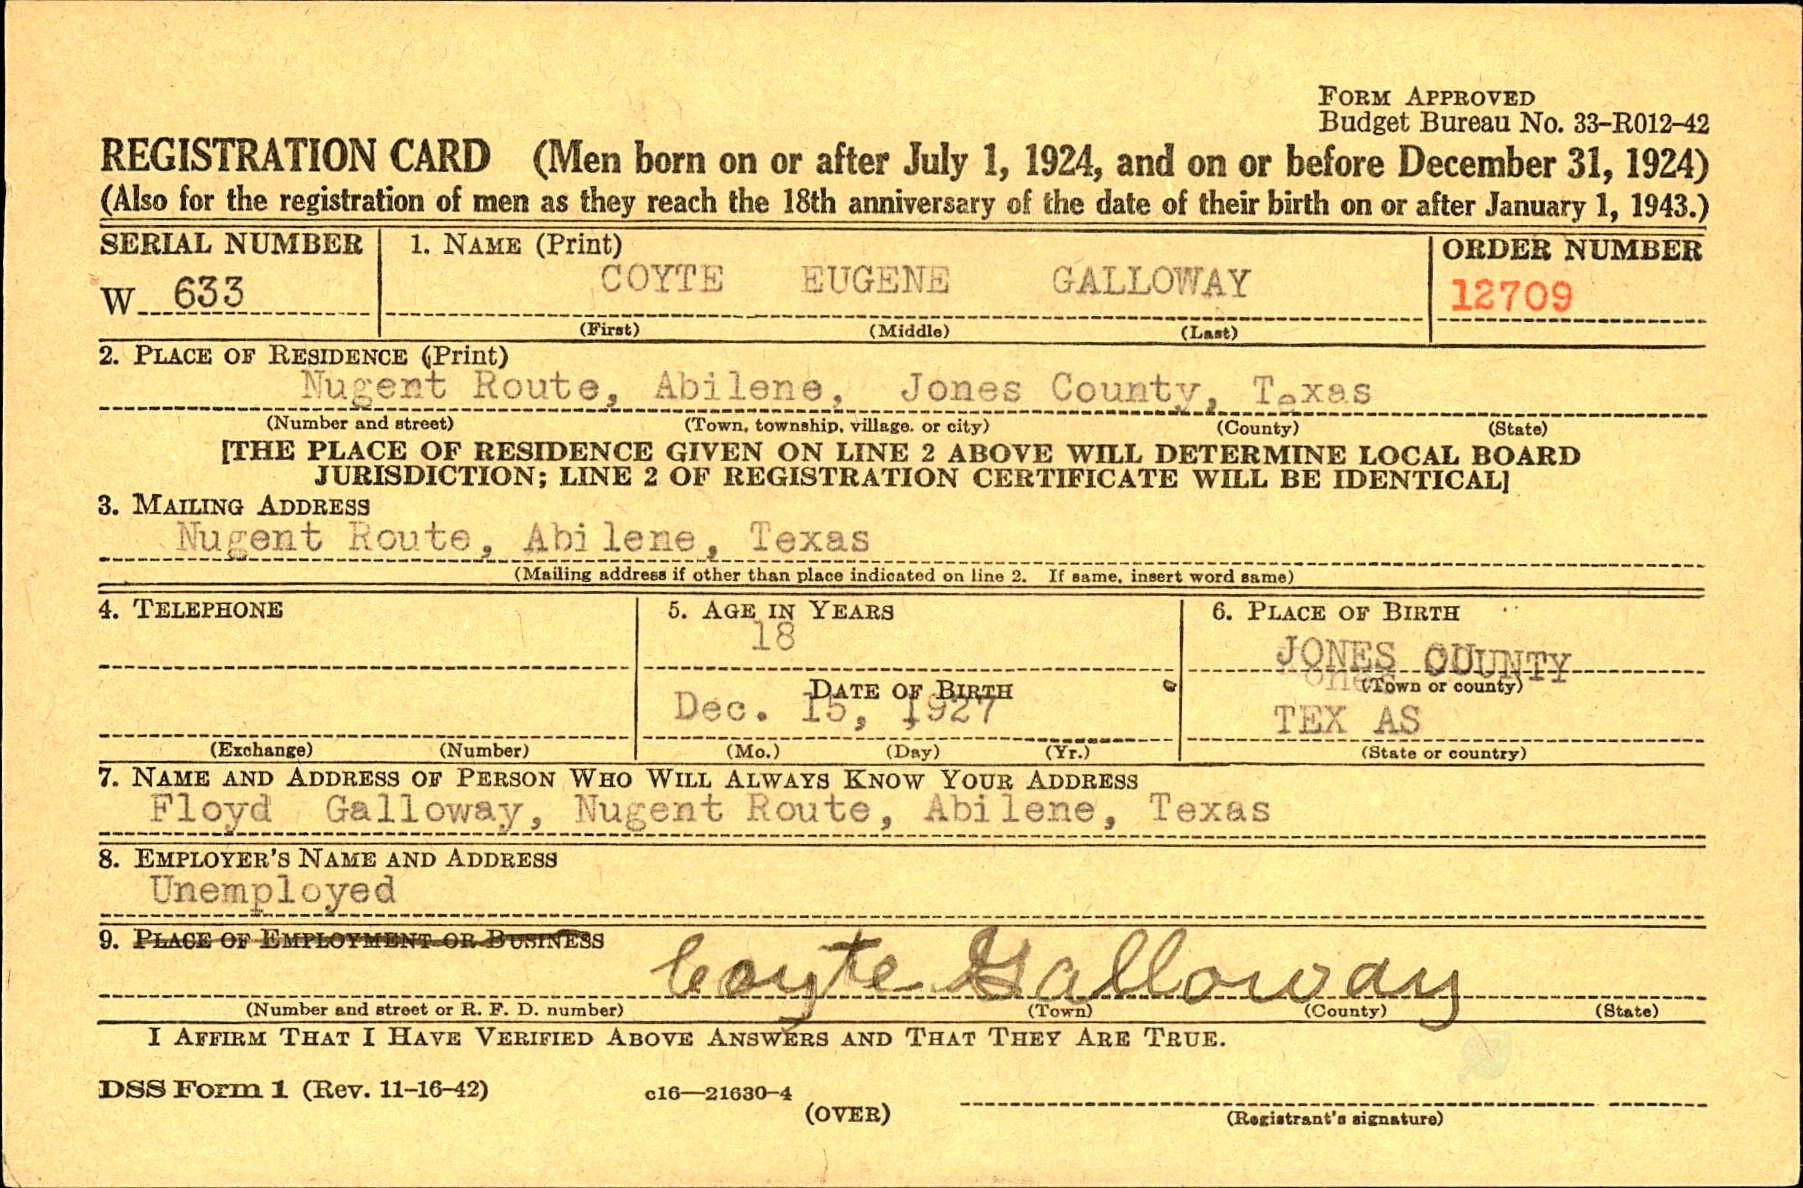 FORM APPROVED
Budget Bureau No. 33-R012-42
REGISTRATION CARD (Men born on or after July 1, 1924, and on or before December 31, 1924)
(Also for the registration of men as they reach the 18th anniversary of the date of their birth on or after January 1, 1943.)
SERIAL NUMBER 1. NAME (Print) ORDER NUMBER
W 633 COYTE EUGENE GALLOWAY 12709
(First) (Middle) (Last)
2. PLACE OF RESIDENCE (Print)
Nugent Route, Abilene, Jones County, Texas
(Number and street) (Town, township, village, or city) (County) (State)
[THE PLACE OF RESIDENCE GIVEN ON LINE 2 ABOVE WILL DETERMINE LOCAL BOARD
JURISDICTION; LINE 2 OF REGISTRATION CERTIFICATE WILL BE IDENTICAL]
3. MAILING ADDRESS
Nugent Route, Abilene, Texas
(Mailing address if other than place indicated on line 2. If same, insert word same)
4. TELEPHONE 5. AGE IN YEARS 6. PLACE OF BIRTH
18 JONES COUNTY
DATE OF BIRTH (Town or county)
Dec. 15, 1927 TEX AS
(Exchange) (Number) (Mo.) (Day) (Yr.) (State or country)
7. NAME AND ADDRESS OF PERSON WHO WILL ALWAYS KNOW YOUR ADDRESS
Floyd Galloway, Nugent Route, Abilene, Texas
8. EMPLOYER'S NAME AND ADDRESS
Unemployed
9. PLACE OF EMPLOYMENT OR BUSINESS
Coyte Galloway
(Number and street or R. F. D. number) (Town) (County) (State)
I AFFIRM THAT I HAVE VERIFIED ABOVE ANSWERS AND THAT THEY ARE TRUE.
DSS Form 1 (Rev. 11-16-42) c16—21630-4
(OVER) (Registrant's signature)